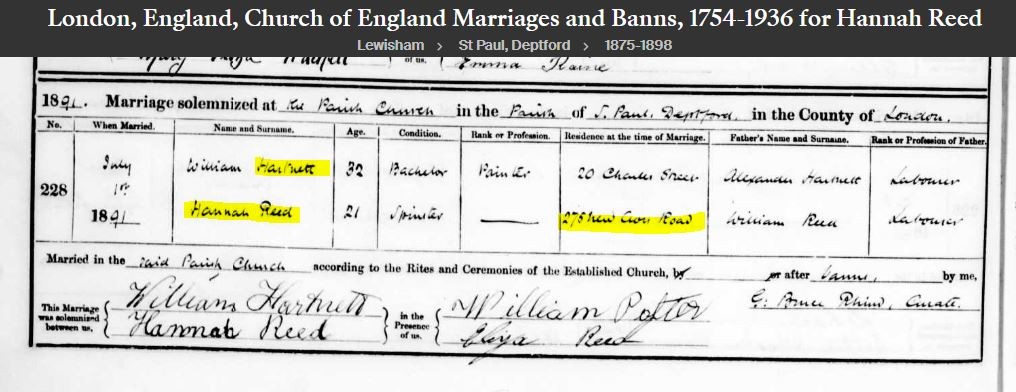 London, England, Church of England Marriages and Banns, 1754-1936 for Hannah Reed
Lewisham > St Paul, Deptford > 1875-1898
of us. Emma Raine
1891. Marriage solemnized at the Parish Church in the Parish of S. Paul. Deptford in the County of London.
No. When Married. Name and Surname. Age. Condition. Rank or Profession. Residence at the time of Marriage. Father's Name and Surname. Rank or Profession of Father.
228 July 1st 1891
William Hartnett 32 Bachelor Painter 20 Charles Street Alexander Hartnett Labourer
Hannah Reed 21 Spinster 275 New Cross Road William Reed Labourer
Married in the said Parish Church according to the Rites and Ceremonies of the Established Church, by or after banns, by me,
G. Bruce Curate.
This Marriage was solemnized between us, William Hartnett in the Presence of us, William
Hannah Reed Eliza Reed